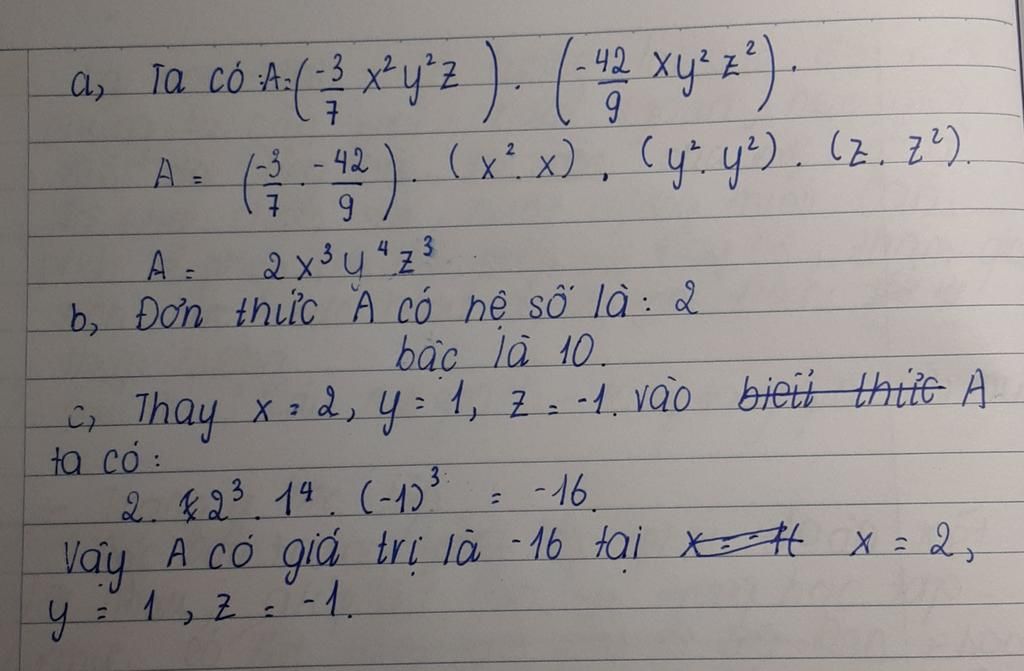 a, Ta có : A = (-3/7 x²y²z) . (-42/9 xy²z²).
A = (-3/7 . -42/9) . (x². x) . (y². y²) . (z. z²).
A = 2x³y⁴z³
b, Đơn thức A có hệ số là: 2
bậc là 10.
c, Thay x = 2, y = 1, z = -1. vào biểu thức A
ta có:
2. 2³. 1⁴. (-1)³ = -16.
Vậy A có giá trị là -16 tại x = 2,
y = 1, z = -1.